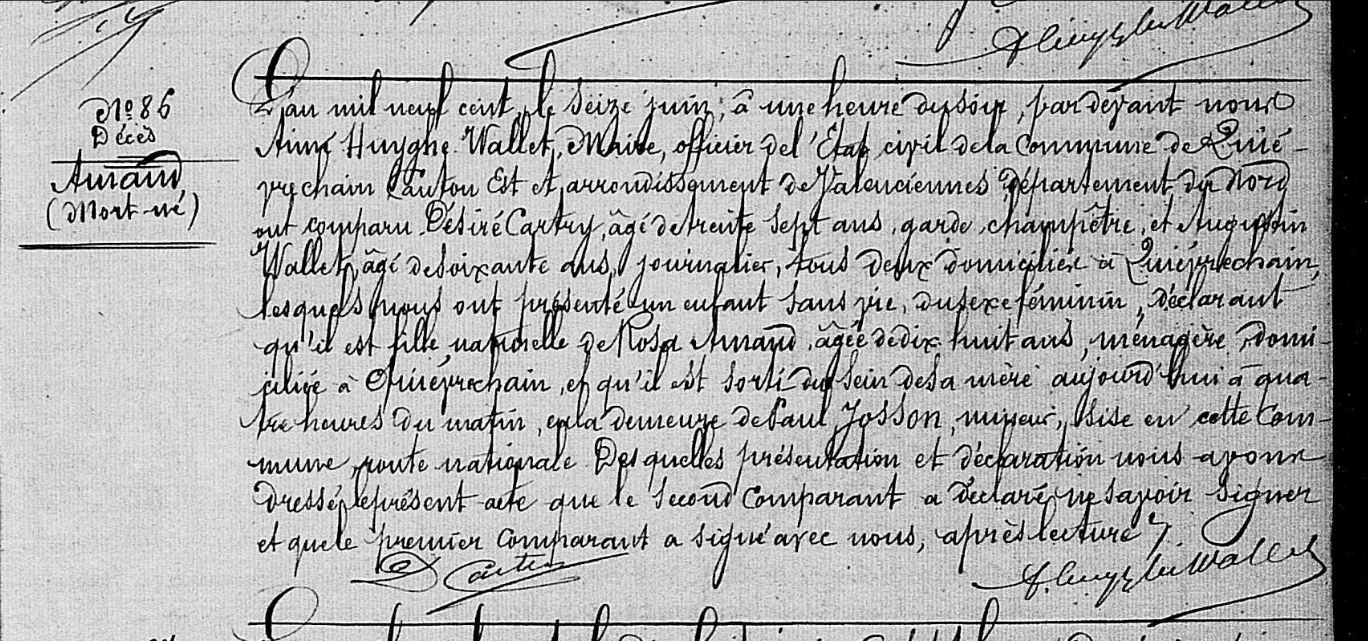 Huyghe Wallet
N° 86
Décès
Amand
(Mort-né)
L'an mil neuf cent, le seize juin, à une heure du soir, par devant nous
Aimé Huyghe Wallet, Maire, officier de l'État civil de la Commune de Quié-
vrechain Canton Est et arrondissement de Valenciennes Département du Nord
ont comparu Désiré Cartry, âgé de trente sept ans, garde champêtre, et Augustin
Wallet, âgé de soixante ans, journalier, tous deux domiciliés à Quiévrechain,
lesquels nous ont présenté un enfant sans vie, du sexe féminin, déclarant
qu'il est fille naturelle de Rosa Amand, âgée de dix huit ans, ménagère, domi-
ciliée à Quiévrechain, et qu'il est sorti du sein de sa mère aujourd'hui à qua-
tre heures du matin, en la demeure de Paul Josson, mineur, sise en cette Com-
mune, route nationale. Desquelles présentation et déclaration nous avons
dressé le présent acte que le second Comparant a déclaré ne savoir signer
et que le premier Comparant a signé avec nous, après lecture.
D Cartry
A. Huyghe Wallet